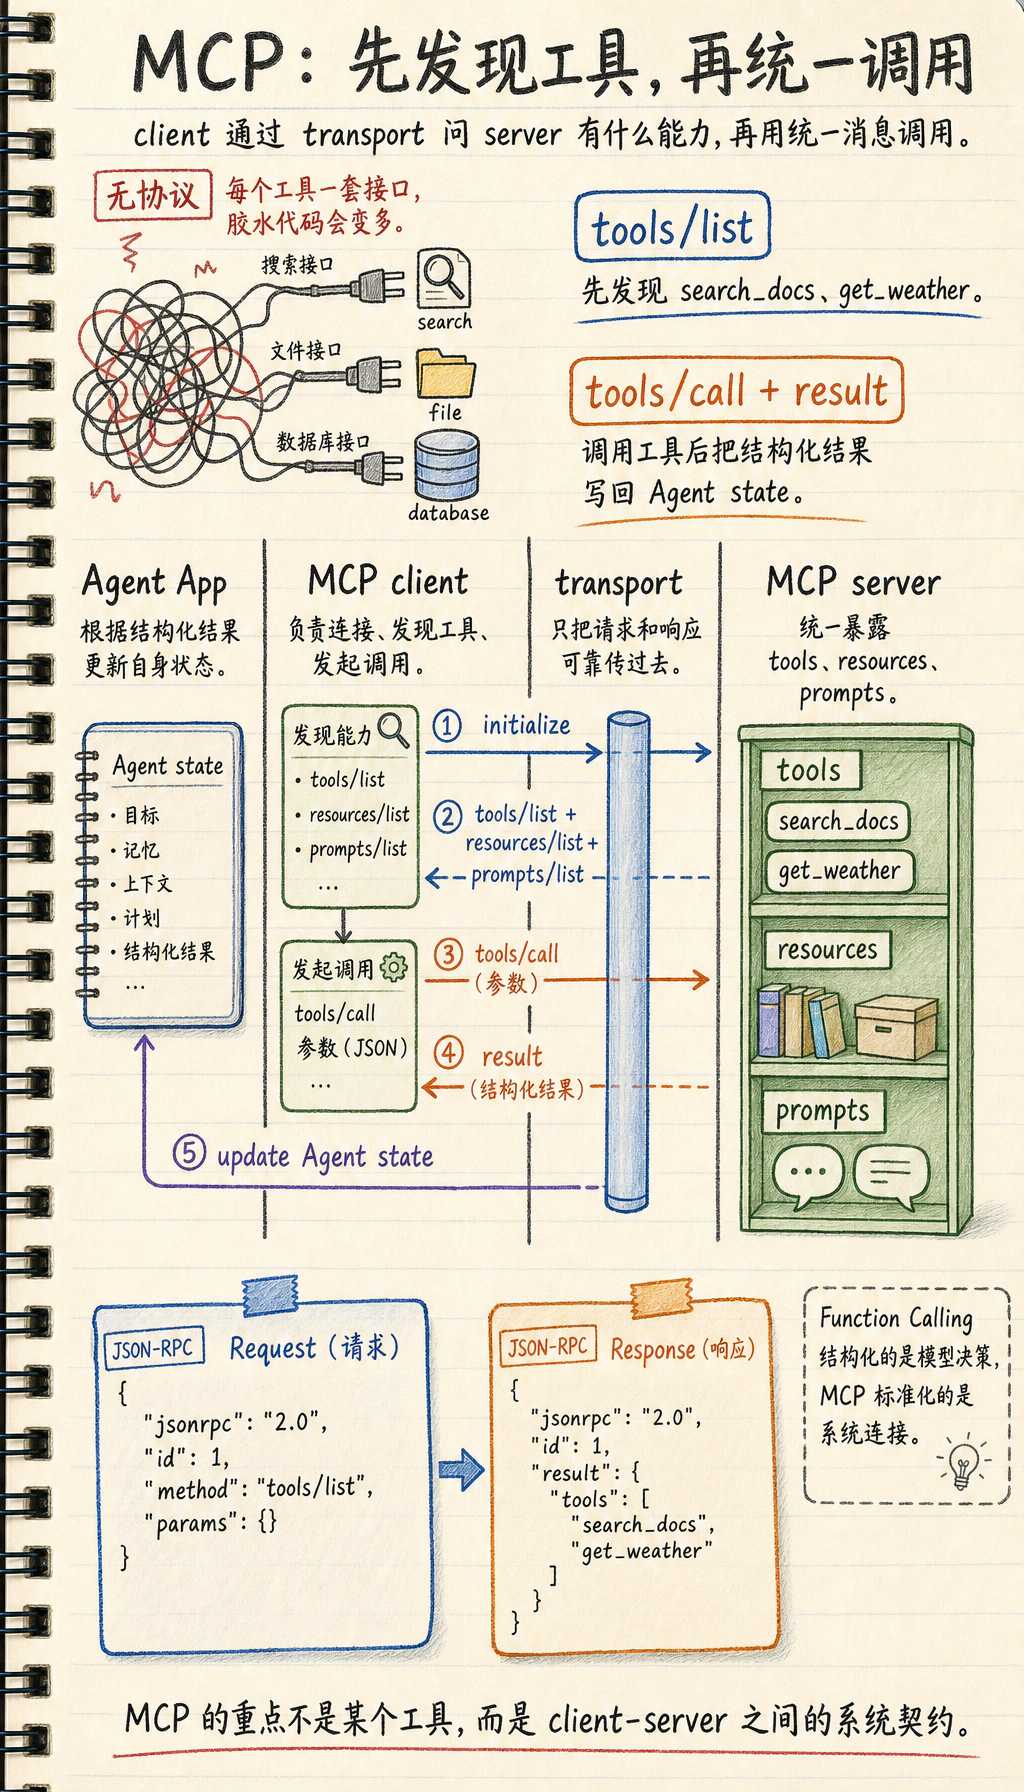 MCP：先发现工具，再统一调用
client 通过 transport 问 server 有什么能力，再用统一消息调用。
无协议
每个工具一套接口，
胶水代码会变多。
搜索接口
search
文件接口
file
数据库接口
database
tools/list
先发现 search_docs、get_weather。
tools/call + result
调用工具后把结构化结果
写回 Agent state。
Agent App
根据结构化结果
更新自身状态。
MCP client
负责连接、发现工具、
发起调用。
transport
只把请求和响应
可靠传过去。
MCP server
统一暴露
tools、resources、
prompts。
Agent state
• 目标
• 记忆
• 上下文
• 计划
• 结构化结果
...
发现能力
• tools/list
• resources/list
• prompts/list
...
发起调用
tools/call
参数 (JSON)
...
① initialize
② tools/list +
resources/list +
prompts/list
③ tools/call
(参数)
④ result
(结构化结果)
⑤ update Agent state
tools
search_docs
get_weather
resources
prompts
JSON-RPC Request (请求)
{
"jsonrpc": "2.0",
"id": 1,
"method": "tools/list",
"params": {}
}
JSON-RPC Response (响应)
{
"jsonrpc": "2.0",
"id": 1,
"result": {
"tools": [
"search_docs",
"get_weather"
]
}
}
Function Calling
结构化的是模型决策，
MCP 标准化的是
系统连接。
MCP 的重点不是某个工具，而是 client-server 之间的系统契约。